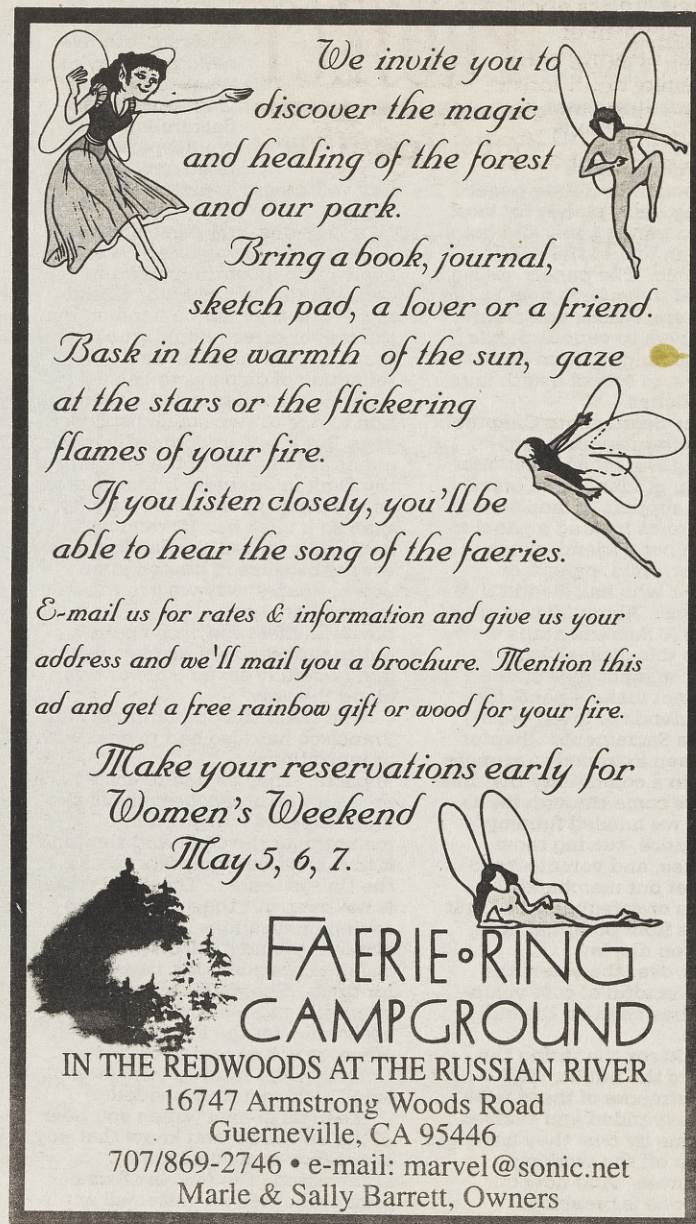 We invite you to
discover the magic
and healing of the forest
and our park.
Bring a book, journal,
sketch pad, a lover or a friend.
Bask in the warmth of the sun, gaze
at the stars or the flickering
flames of your fire.
If you listen closely, you'll be
able to hear the song of the faeries.
E-mail us for rates & information and give us your
address and we'll mail you a brochure. Mention this
ad and get a free rainbow gift or wood for your fire.
Make your reservations early for
Women's Weekend
May 5, 6, 7.
FAERIE•RING
CAMPGROUND
IN THE REDWOODS AT THE RUSSIAN RIVER
16747 Armstrong Woods Road
Guerneville, CA 95446
707/869-2746 • e-mail: marvel@sonic.net
Marle & Sally Barrett, Owners